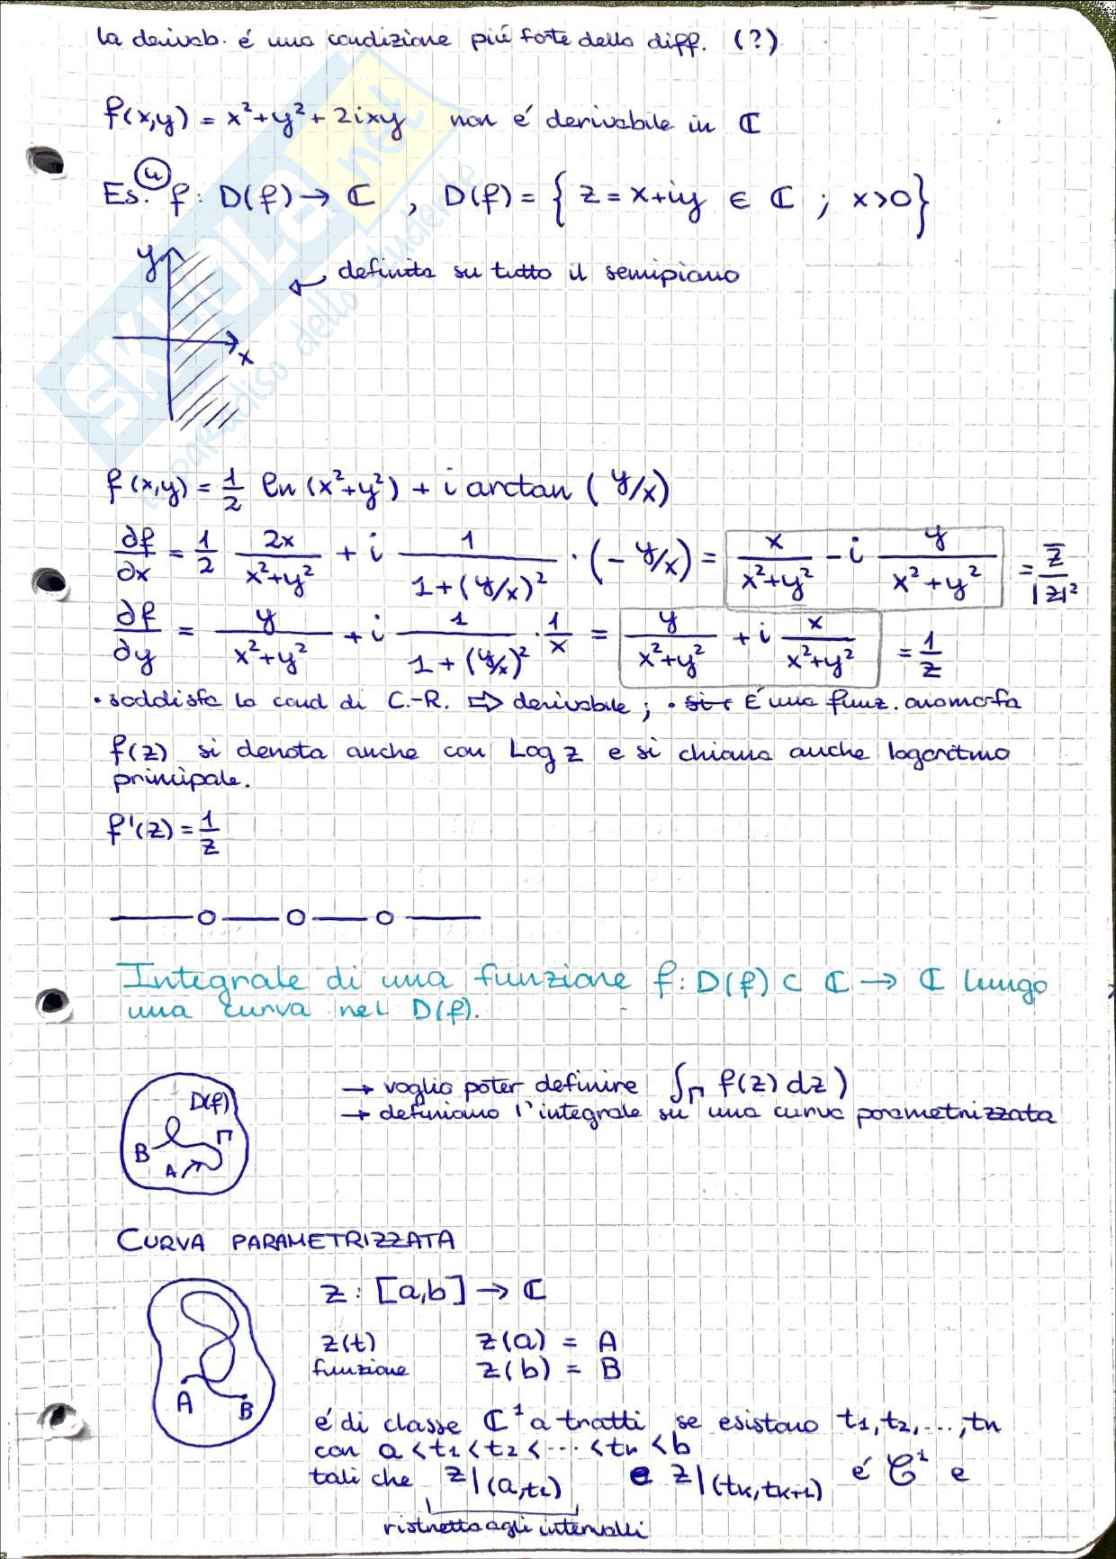 la derivab. é una condizione piú forte della diff. (?)
f(x,y) = x²+y²+2ixy non é derivabile in ℂ
Es. ④ f: D(f) → ℂ , D(f) = { z = x+iy ∈ ℂ ; x>0 }
y
definita su tutto il semipiano
x
f(x,y) = 1/2 ln (x²+y²) + i arctan ( y/x)
∂f/∂x = 1/2 2x/(x²+y²) + i 1/(1+(y/x)²) · (- y/x) = x/(x²+y²) - i y/(x²+y²) = z̅/|z|²
∂f/∂y = y/(x²+y²) + i 1/(1+(y/x)²) · 1/x = y/(x²+y²) + i x/(x²+y²) = 1/z
• soddisfa la cond di C.-R. ⇒ derivabile; • É una funz. onomorfa
f(z) si denota anche con Log z e si chiama anche logaritmo
principale.
f'(z) = 1/z
Integrale di una funzione f: D(f) ⊂ ℂ → ℂ lungo
una curva nel D(f).
D(f)
B
Γ
A
→ voglio poter definire ∫Γ f(z) dz)
→ definiamo l'integrale su una curva parametrizzata
CURVA PARAMETRIZZATA
z : [a,b] → ℂ
z(t) z(a) = A
funzione z(b) = B
A
B
é di classe ℂ¹ a tratti se esistono t1, t2, ..., tn
con a < t1 < t2 < ... < tn < b
tali che z|(a,t1) e z|(tk,tk+1) é C¹ e
ristretta agli intervalli
SKUOLA.net
il paradiso dello studente